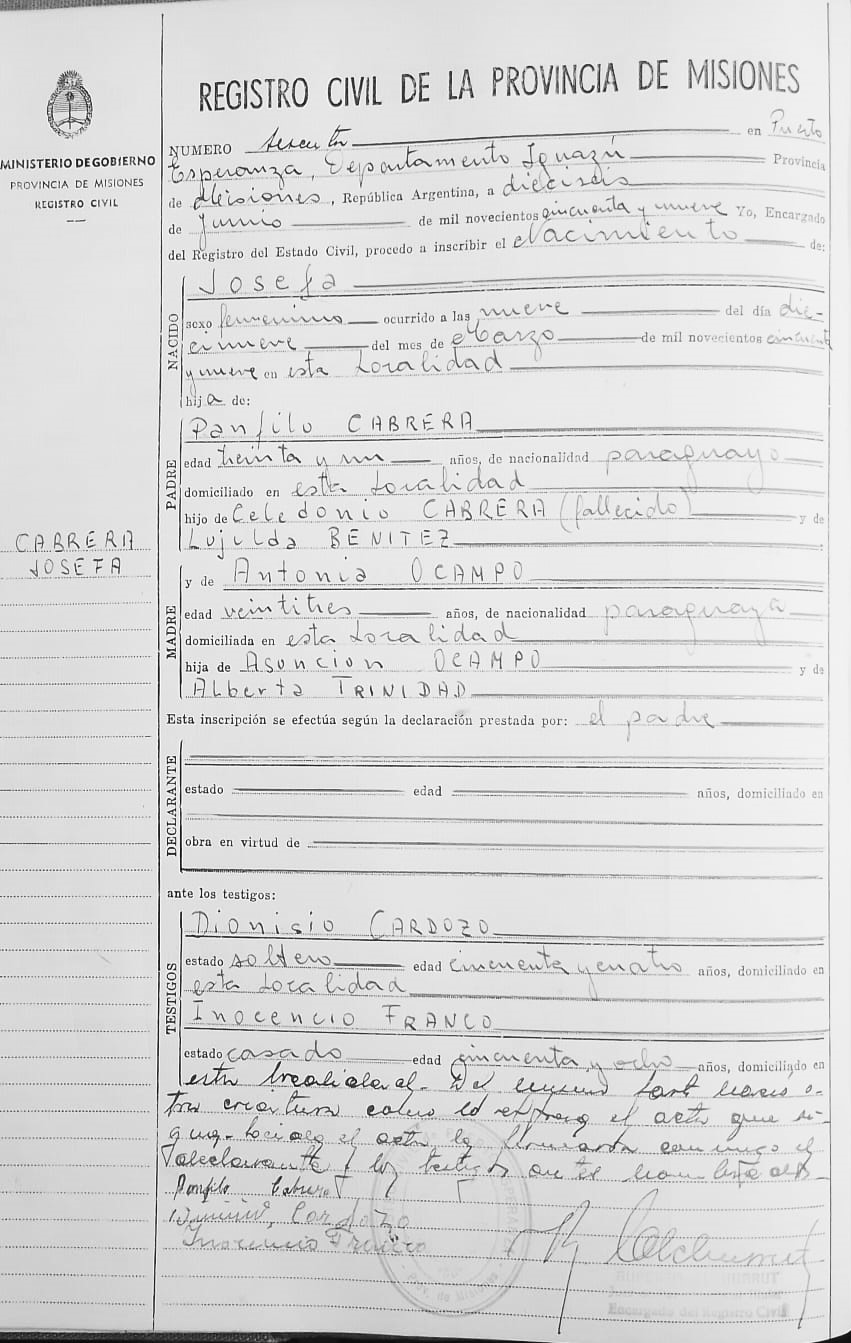 REGISTRO CIVIL DE LA PROVINCIA DE MISIONES
MINISTERIO DE GOBIERNO
PROVINCIA DE MISIONES
REGISTRO CIVIL
CABRERA
JOSEFA
NUMERO sesenta en Puerto
Esperanza, Departamento Iguazú Provincia
de Misiones, República Argentina, a dieciseis
de Junio de mil novecientos cincuenta y nueve Yo, Encargado
del Registro del Estado Civil, procedo a inscribir el Nacimiento de:
NACIDO
Josefa
sexo femenino ocurrido a las nueve del día die-
cinueve del mes de Marzo de mil novecientos cincuenta
y nueve en esta Localidad
hija de:
PADRE
Panfilo CABRERA
edad treinta y un años, de nacionalidad paraguayo
domiciliado en esta Localidad
hijo de Celedonio CABRERA (fallecido) y de
Lujilda BENITEZ
MADRE
y de Antonia OCAMPO
edad veintitres años, de nacionalidad paraguaya
domiciliada en esta Localidad
hija de Asuncion OCAMPO y de
Alberta TRINIDAD
Esta inscripción se efectúa según la declaración prestada por: el padre
DECLARANTE
estado edad años, domiciliado en
obra en virtud de
ante los testigos:
TESTIGOS
Dionisio CARDOZO
estado soltero edad cincuenta y cuatro años, domiciliado en
esta Localidad
Inocencio FRANCO
estado casado edad cincuenta y ocho años, domiciliado en
esta localidad. En el mismo nació o-
tra criatura como lo el acta que si-
gue. el acta la conmigo el
declarante y los testigos
Panfilo Cabrera
Cardozo
Inocencio Franco
Prov. de Misiones
Encargado del Registro Civil